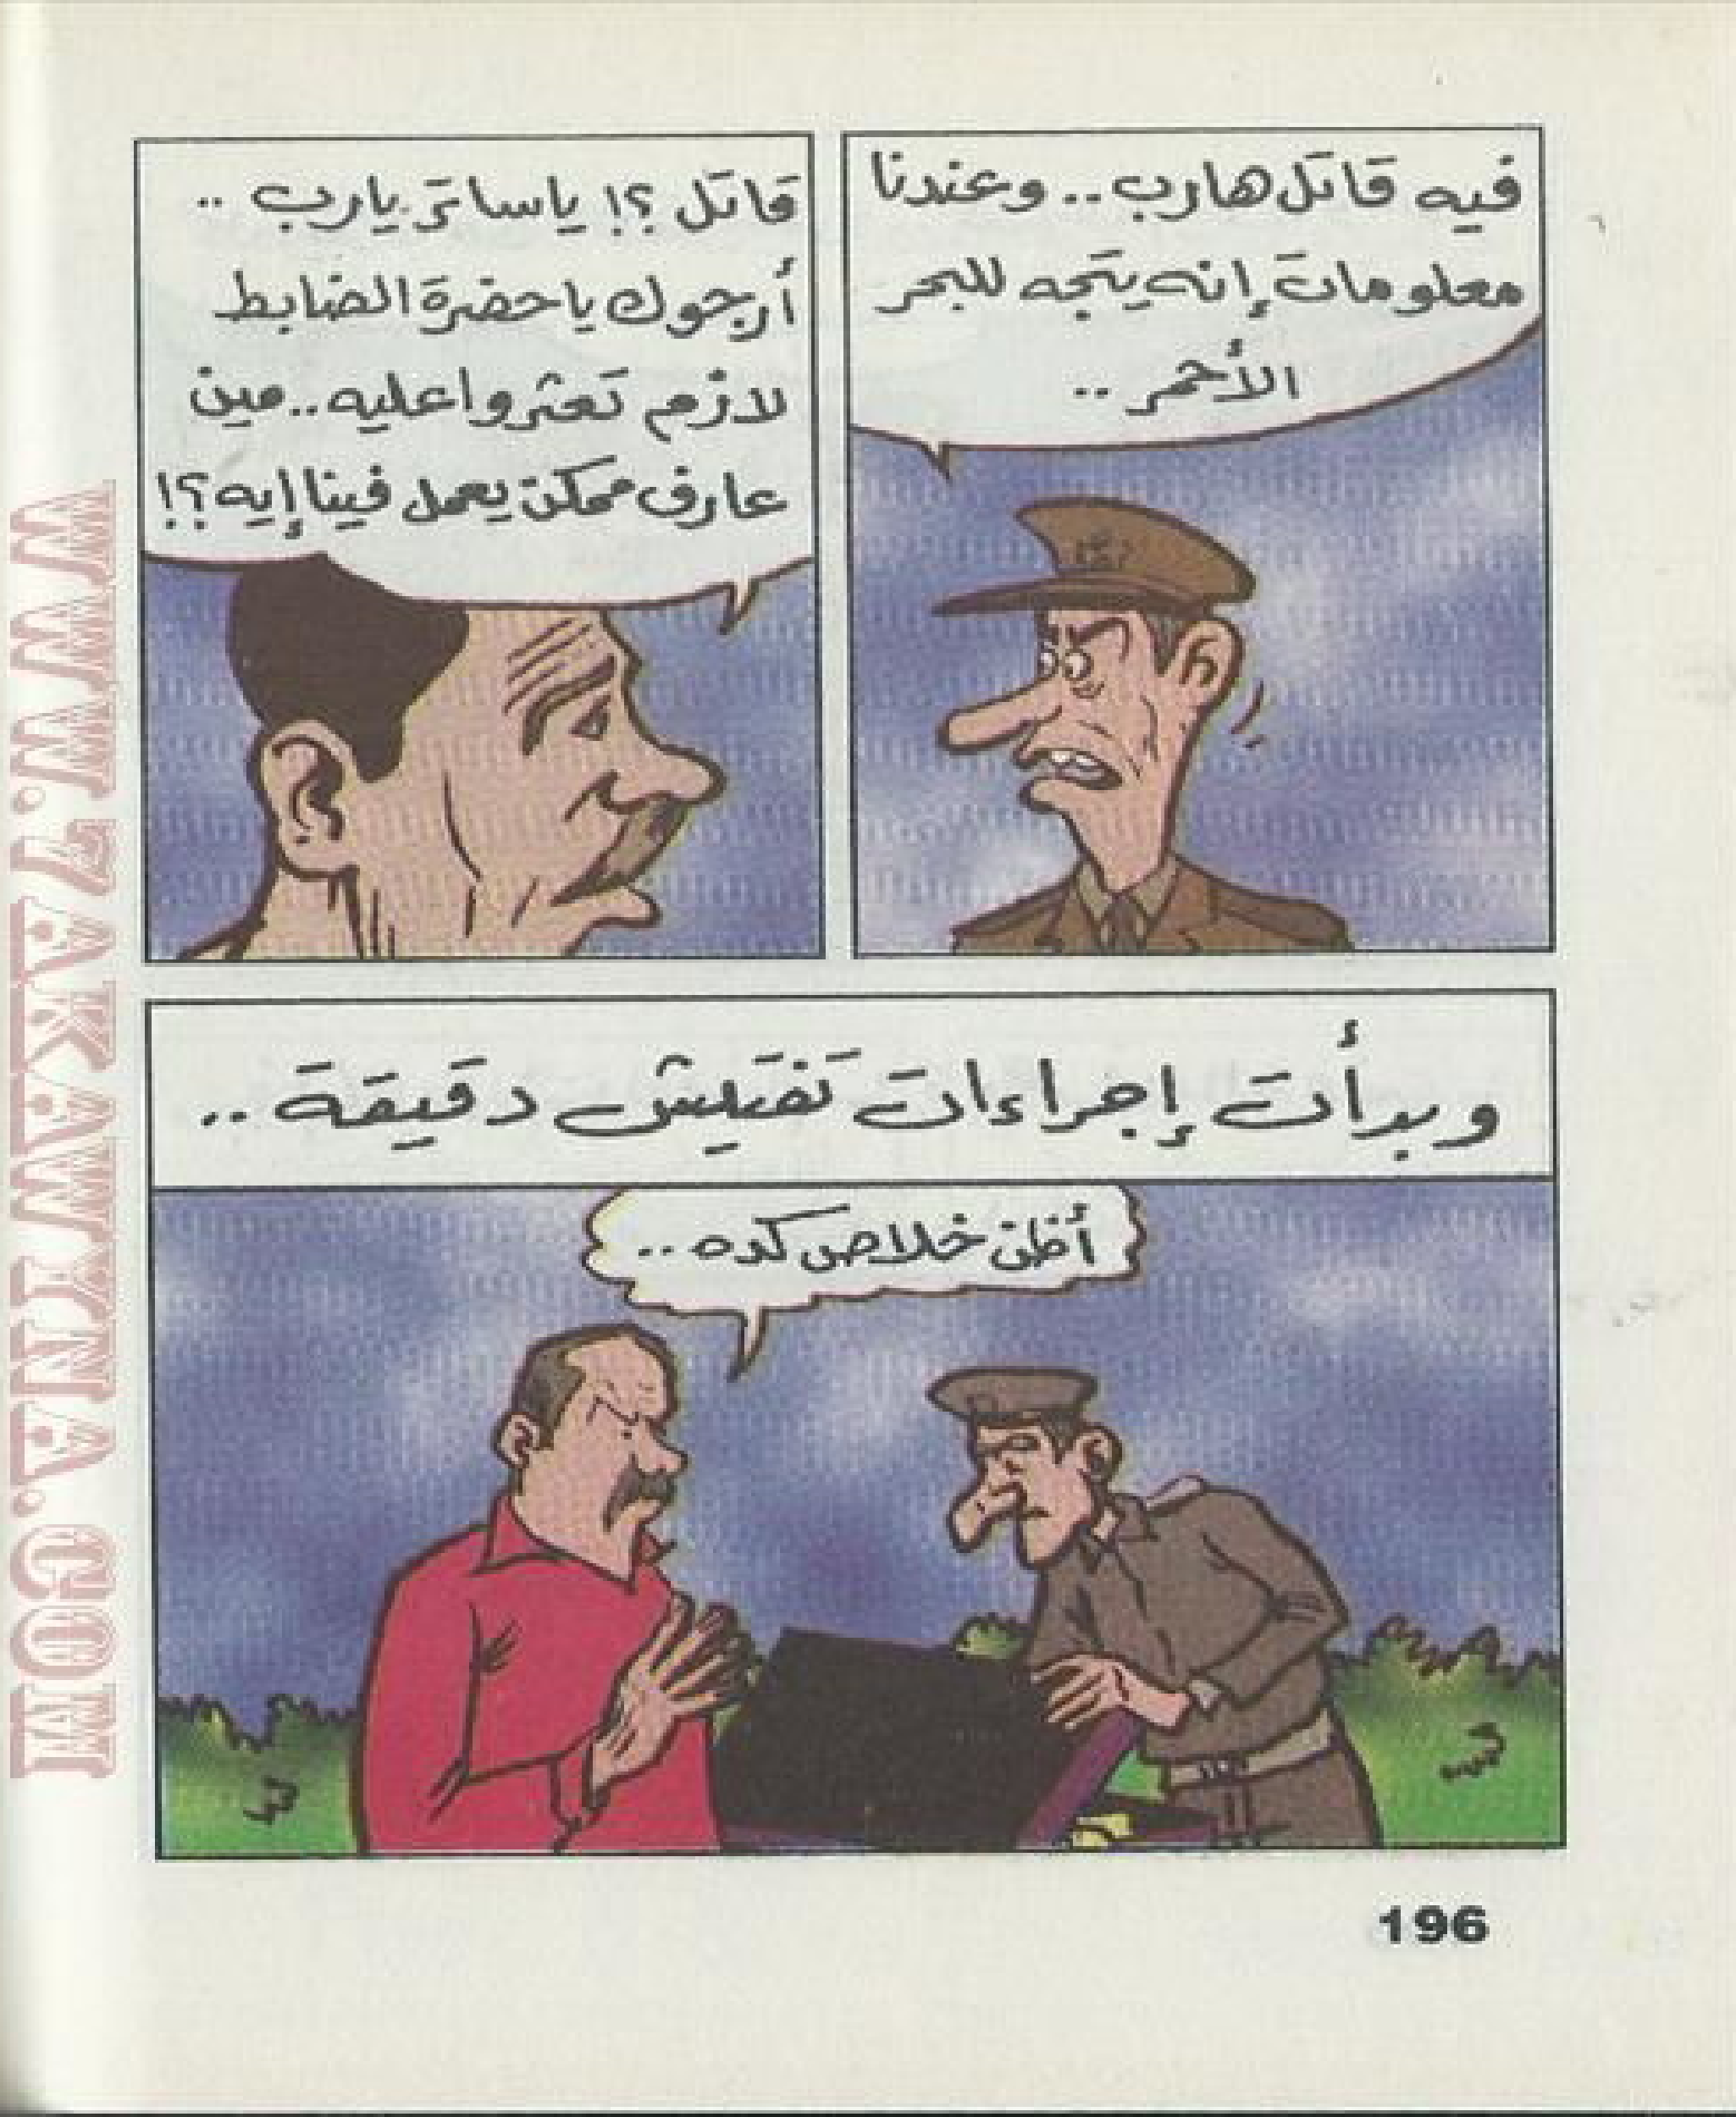 فيه قاتل هارب.. وعندنا
معلومات إنه يتجه للبحر
الأحمر ..
قاتل ؟! ياساتر يارب ..
أرجوك ياحضرة الضابط
لازم تعثروا عليه.. مين
عارف ممكن يعمل فينا إيه؟!
وبدأت إجراءات تفتيش دقيقة ..
أظن خلاص كده ..
196
WWW.7AKAWINA.COM